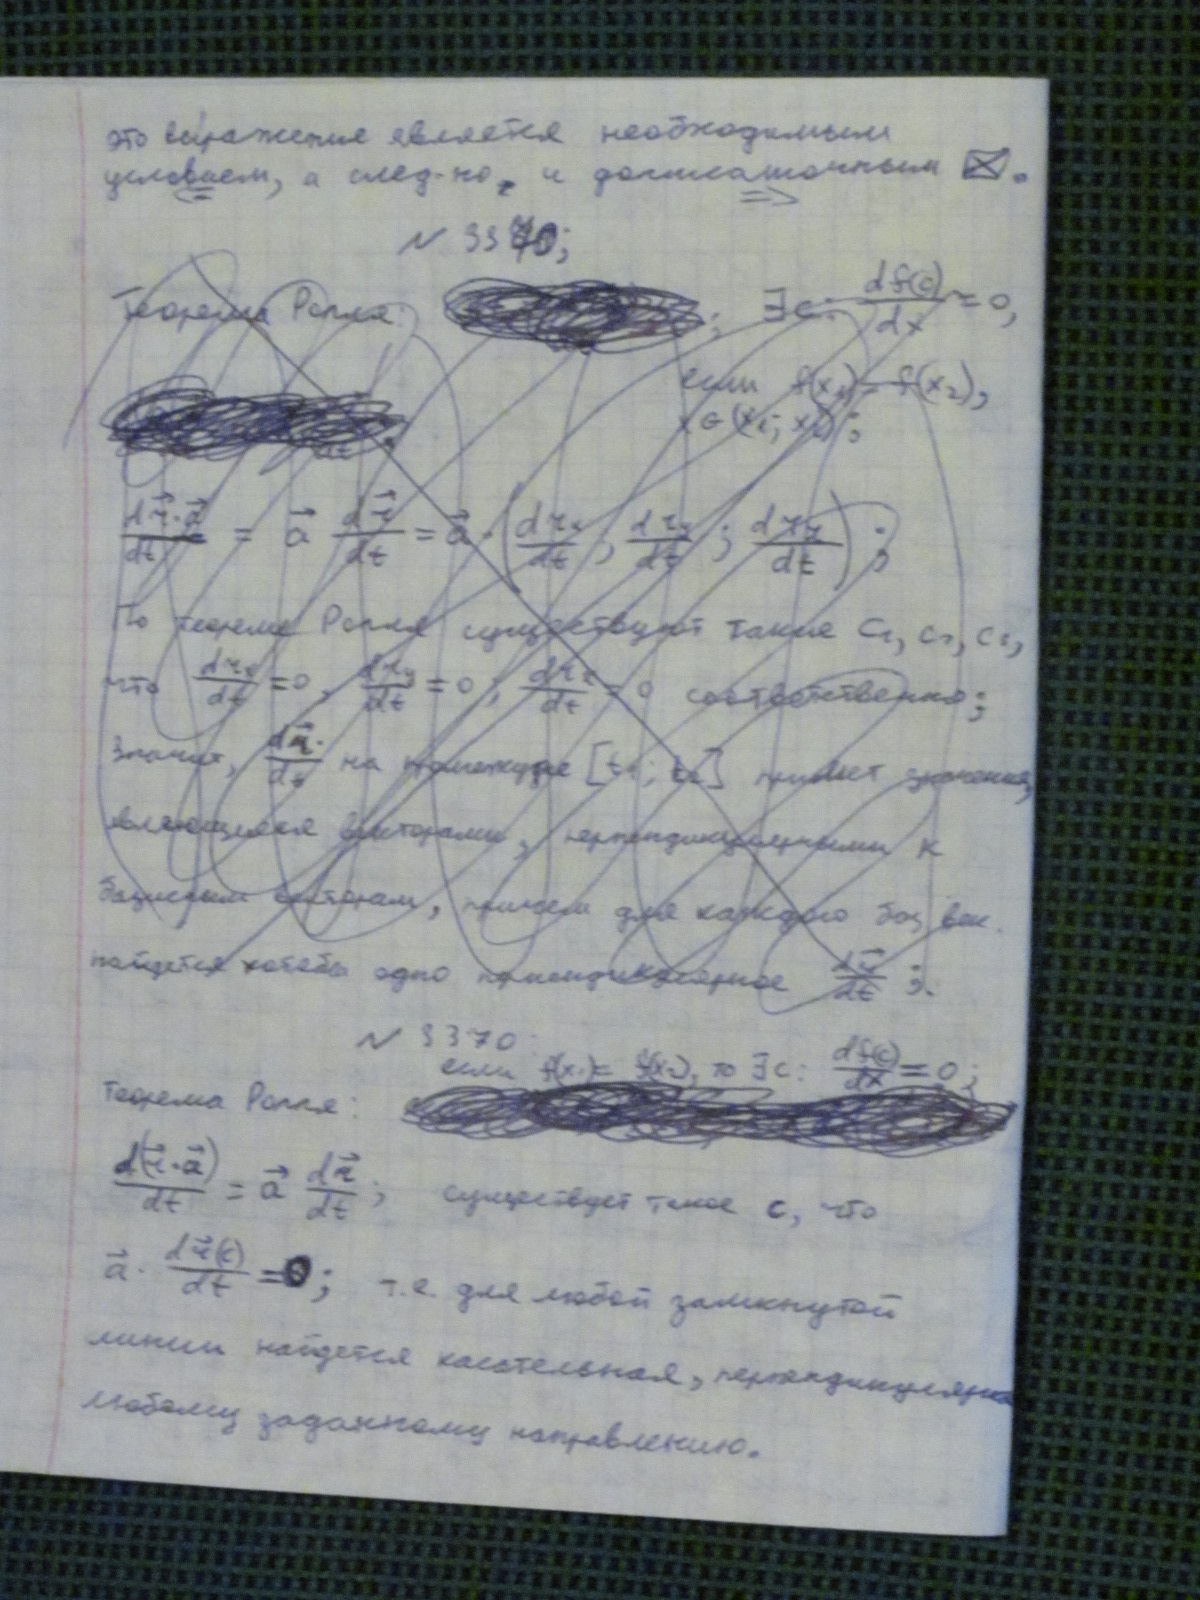 это выражение является необходимым
условием, а след-но, и достаточным ☒.
<= =>
№ 3370;
Теорема Ролля: ; ∃c: df(c)/dx = 0,
если f(x₁) = f(x₂),
x ∈ (x₁; x₂);
d r⃗·a⃗/dt = a⃗ dr⃗/dt = a⃗ · (drₓ/dt ; dr_y/dt ; dr_z/dt) ;
По теореме Ролля существуют такие c₁, c₂, c₃,
что drₓ/dt = 0, dr_y/dt = 0 ; dr_z/dt = 0 соответственно;
Значит, dr⃗/dt на промежутке [t₁; t₂] примет значения,
являющиеся векторами, перпендикулярными к
базисным векторам, причем для каждого баз. век.
найдется хотябы одно перпендикулярное dr⃗/dt ;.
№ 3370
если f(x₁) = f(x₂), то ∃c: df(c)/dx = 0 ;
Теорема Ролля:
d(r⃗·a⃗)/dt = a⃗ dr⃗/dt ; существует такое c, что
a⃗ · dr⃗(c)/dt = 0 ; т.е. для любой замкнутой
линии найдется касательная, перпендикулярная
любому заданному направлению.